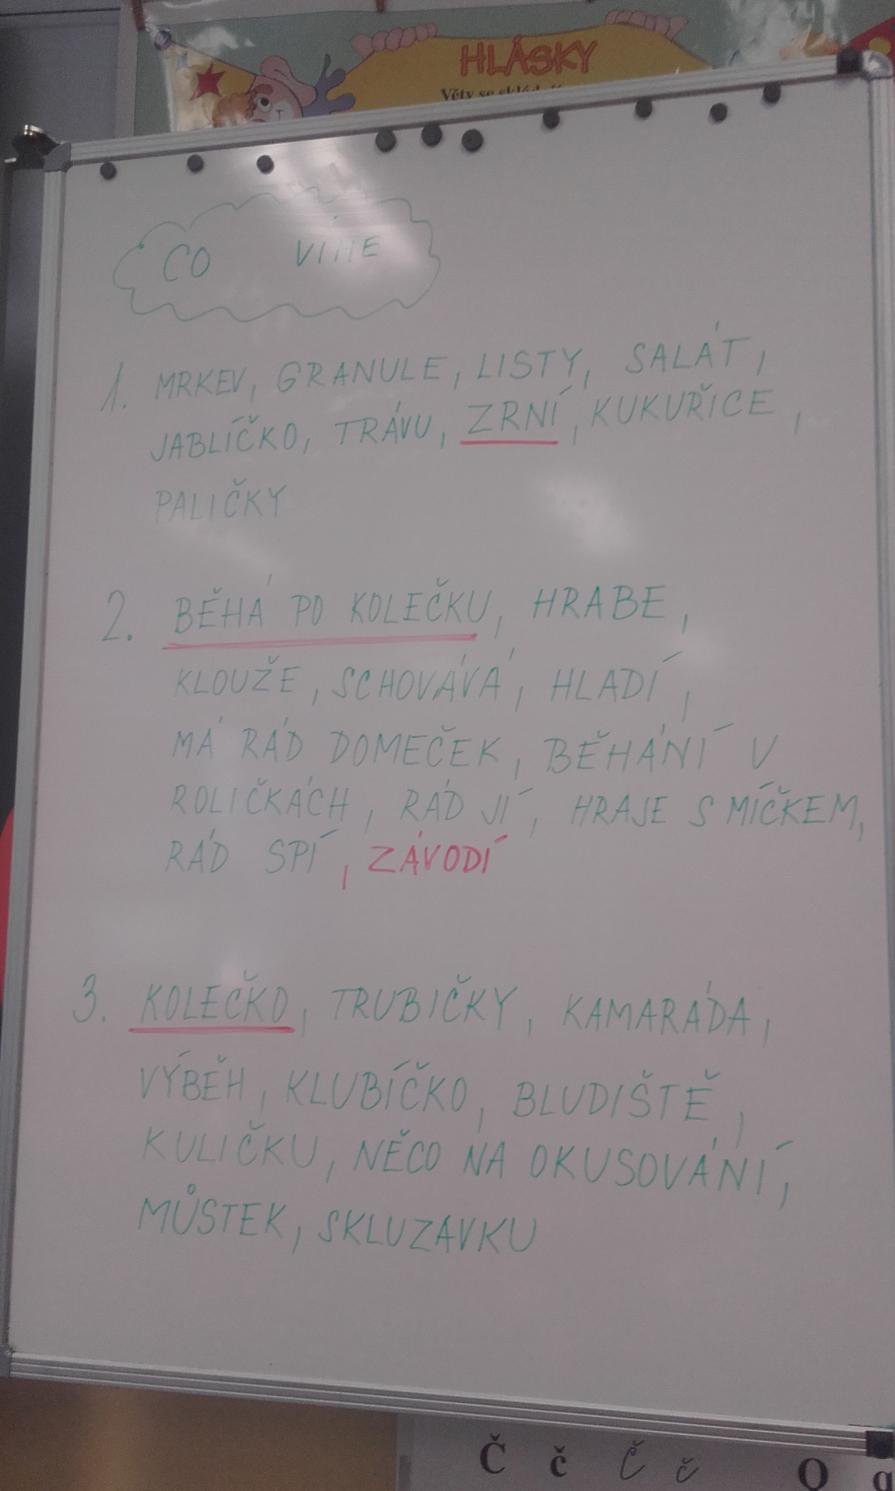 HLÁSKY
Věty se skládají
CO VÍME
1. MRKEV, GRANULE, LISTY, SALÁT,
JABLÍČKO, TRÁVU, ZRNÍ, KUKUŘICE,
PALIČKY
2. BĚHÁ PO KOLEČKU, HRABE,
KLOUŽE, SCHOVÁVÁ, HLADÍ,
MÁ RÁD DOMEČEK, BĚHÁNÍ V
ROLIČKÁCH, RÁD JÍ, HRAJE S MÍČKEM,
RÁD SPÍ, ZÁVODÍ
3. KOLEČKO, TRUBIČKY, KAMARÁDA,
VÝBĚH, KLUBÍČKO, BLUDIŠTĚ,
KULIČKU, NĚCO NA OKUSOVÁNÍ,
MŮSTEK, SKLUZAVKU
Č č Č č O